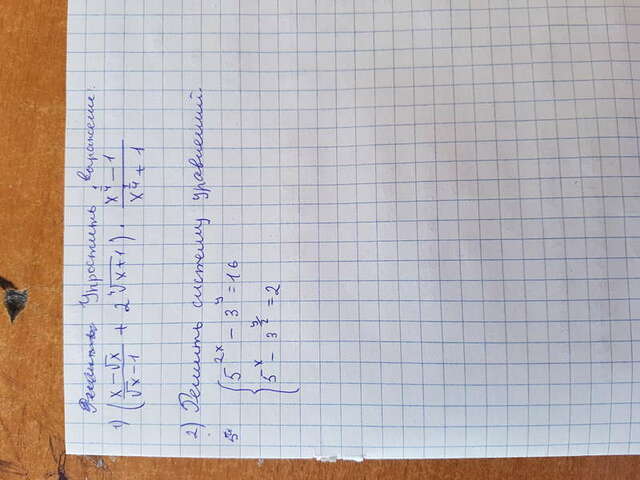 Упростить выражение:
1) ((x-√x)/(√x-1) + 2∜x+1) · (x^(1/4)-1)/(x^(1/4)+1)
2) Решить систему уравнений.
{ 5^(2x) - 3^y = 16
{ 5^x - 3^(y/2) = 2